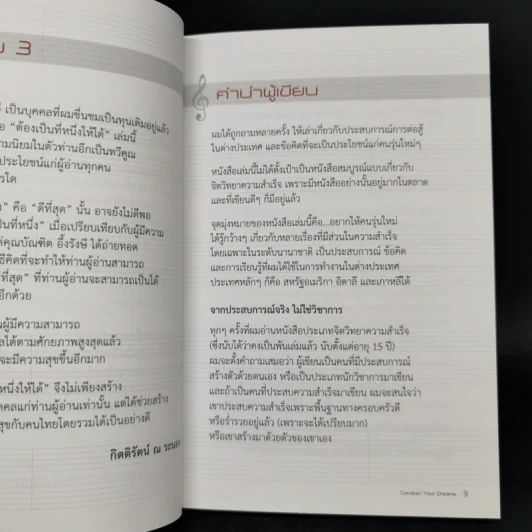 ม 3
เป็นบุคคลที่ผมชื่นชมเป็นทุนเดิมอยู่แล้ว
อ “ต้องเป็นที่หนึ่งให้ได้” เล่มนี้
ามนิยมในตัวท่านอีกเป็นทวีคูณ
ประโยชน์แก่ผู้อ่านทุกคน
รใด
” คือ “ดีที่สุด” นั้น อาจยังไม่ดีพอ
ป็นที่หนึ่ง” เมื่อเปรียบเทียบกับผู้มีความ
ต่คุณบัณฑิต อึ้งรังษี ได้ถ่ายทอด
ธีคิดที่จะทำให้ท่านผู้อ่านสามารถ
ที่สุด” ที่ท่านผู้อ่านจะสามารถเป็นได้
อีกด้วย
ผู้มีความสามารถ
ลได้ตามศักยภาพสูงสุดแล้ว
จะมีความสุขขึ้นอีกมาก
หนึ่งให้ได้” จึงไม่เพียงสร้าง
คคลแก่ท่านผู้อ่านเท่านั้น แต่ได้ช่วยสร้าง
สุขกับคนไทยโดยรวมได้เป็นอย่างดี
กิตติรัตน์ ณ ระนอง
คำนำผู้เขียน
ผมได้ถูกถามหลายครั้ง ให้เล่าเกี่ยวกับประสบการณ์การต่อสู้
ในต่างประเทศ และข้อคิดที่จะเป็นประโยชน์แก่คนรุ่นใหม่ๆ
หนังสือเล่มนี้ไม่ได้ตั้งเป้าเป็นหนังสือสมบูรณ์แบบเกี่ยวกับ
จิตวิทยาความสำเร็จ เพราะมีหนังสืออย่างนั้นอยู่มากในตลาด
และที่เขียนดีๆ ก็มีอยู่แล้ว
จุดมุ่งหมายของหนังสือเล่มนี้คือ...อยากให้คนรุ่นใหม่
ได้รู้กว้างๆ เกี่ยวกับหลายเรื่องที่มีส่วนในความสำเร็จ
โดยเฉพาะในระดับนานาชาติ เป็นประสบการณ์ ข้อคิด
และการเรียนรู้ที่ผมได้ใช้ในการทำงานในต่างประเทศ
ประเทศหลักๆ ก็คือ สหรัฐอเมริกา อิตาลี และเกาหลีใต้
จากประสบการณ์จริง ไม่ใช่วิชาการ
ทุกๆ ครั้งที่ผมอ่านหนังสือประเภทจิตวิทยาความสำเร็จ
(ซึ่งนับได้ว่าคงเป็นพันเล่มแล้ว นับตั้งแต่อายุ 15 ปี)
ผมจะตั้งคำถามเสมอว่า ผู้เขียนเป็นคนที่มีประสบการณ์
สร้างตัวด้วยตนเอง หรือเป็นประเภทนักวิชาการมาเขียน
และถ้าเป็นคนที่ประสบความสำเร็จมาเขียน ผมจะสนใจว่า
เขาประสบความสำเร็จเพราะพื้นฐานทางครอบครัวดี
หรือร่ำรวยอยู่แล้ว (เพราะจะได้เปรียบมาก)
หรือเขาสร้างมาด้วยตัวของเขาเอง
Conduct Your Dreams 9